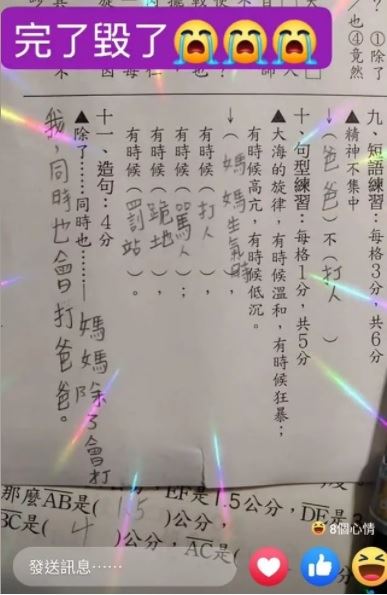 完了毀了😭😭😭
？①除了
也④竟然
九、短語練習：每格3分，共6分
▲精神不集中
↓（爸爸）不（打人）
十、句型練習：每格1分，共5分
▲大海的旋律，有時候溫和，有時候狂暴；
有時候高亢，有時候低沉。
↓（媽媽生氣時），
有時候（打人），
有時候（罵人）；
有時候（跪地），
有時候（罰站）。
十一、造句：4分
▲除了……同時也……媽媽除了會打
我同時也會打爸爸。
那麼AB是(1.5)公分，EF是1.5公分，DE是
BC是(4)公分，AC是
8個心情
發送訊息……